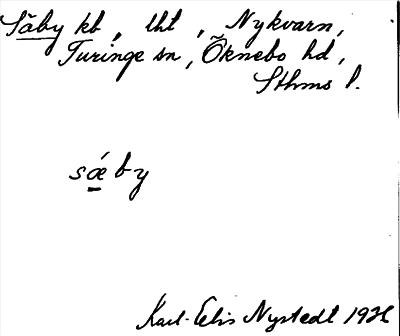 Säby kb, lht, Nykvarn,
Turinge sn, Öknebo hd,
Sthms l.
sǽby
Karl-Elis Nystedt